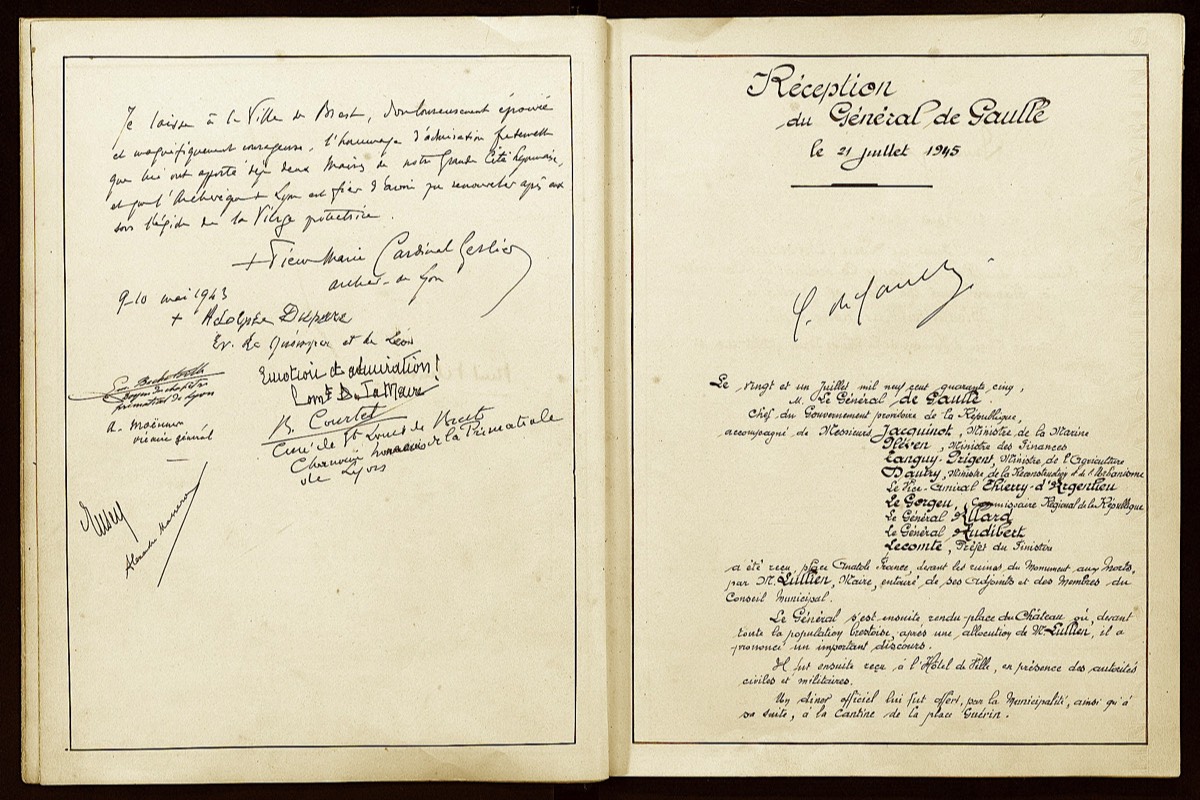 Je laisse à la Ville de Brest, douloureusement éprouvée
et magnifiquement courageuse, l'hommage d'admiration
que lui ont apporté déjà deux Maires de notre Grande Cité Lyonnaise,
et que l'Archevêque de Lyon est fier d'avoir pu renouveler après eux
sous l'égide de la Vierge protectrice.
+ Pierre Marie Cardinal Gerlier
arche. de Lyon
9-10 mai 1943
+ Adolphe Duparc
Ev. de Quimper et de Léon
Emotion et admiration!
doyen du chapitre
primatial de Lyon
vicaire général
B. Courtet
Curé de St Louis de Brest
Chanoine honoraire de la Primatiale
de Lyon
Réception
du Général de Gaulle
le 21 juillet 1945
C. de Gaulle
Le vingt et un Juillet mil neuf cent quarante cinq,
M. Le Général de Gaulle
Chef du Gouvernement provisoire de la République,
accompagné de Messieurs Jacquinot, Ministre de la Marine
Pléven, Ministre des Finances
Tanguy-Prigent, Ministre de l'Agriculture
Dautry, Ministre de la Reconstruction et de l'Urbanisme
Le Vice-Amiral Thierry-d'Argenlieu
Le Gorgeu, Commissaire Régional de la République
Le Général Allard
Le Général Audibert
Lecomte, Préfet du Finistère
a été reçu, place Anatole France, devant les ruines du Monument aux Morts,
par M. Lullien, Maire, entouré de ses Adjoints et des Membres du
Conseil Municipal.
Le Général s'est ensuite rendu place du Château où, devant
toute la population brestoise, après une allocution de M. Lullien, il a
prononcé un important discours.
Il fut ensuite reçu à l'Hôtel de Ville, en présence des autorités
civiles et militaires.
Un dîner officiel lui fut offert, par la Municipalité, ainsi qu'à
sa suite, à la Cantine de la place Guérin.